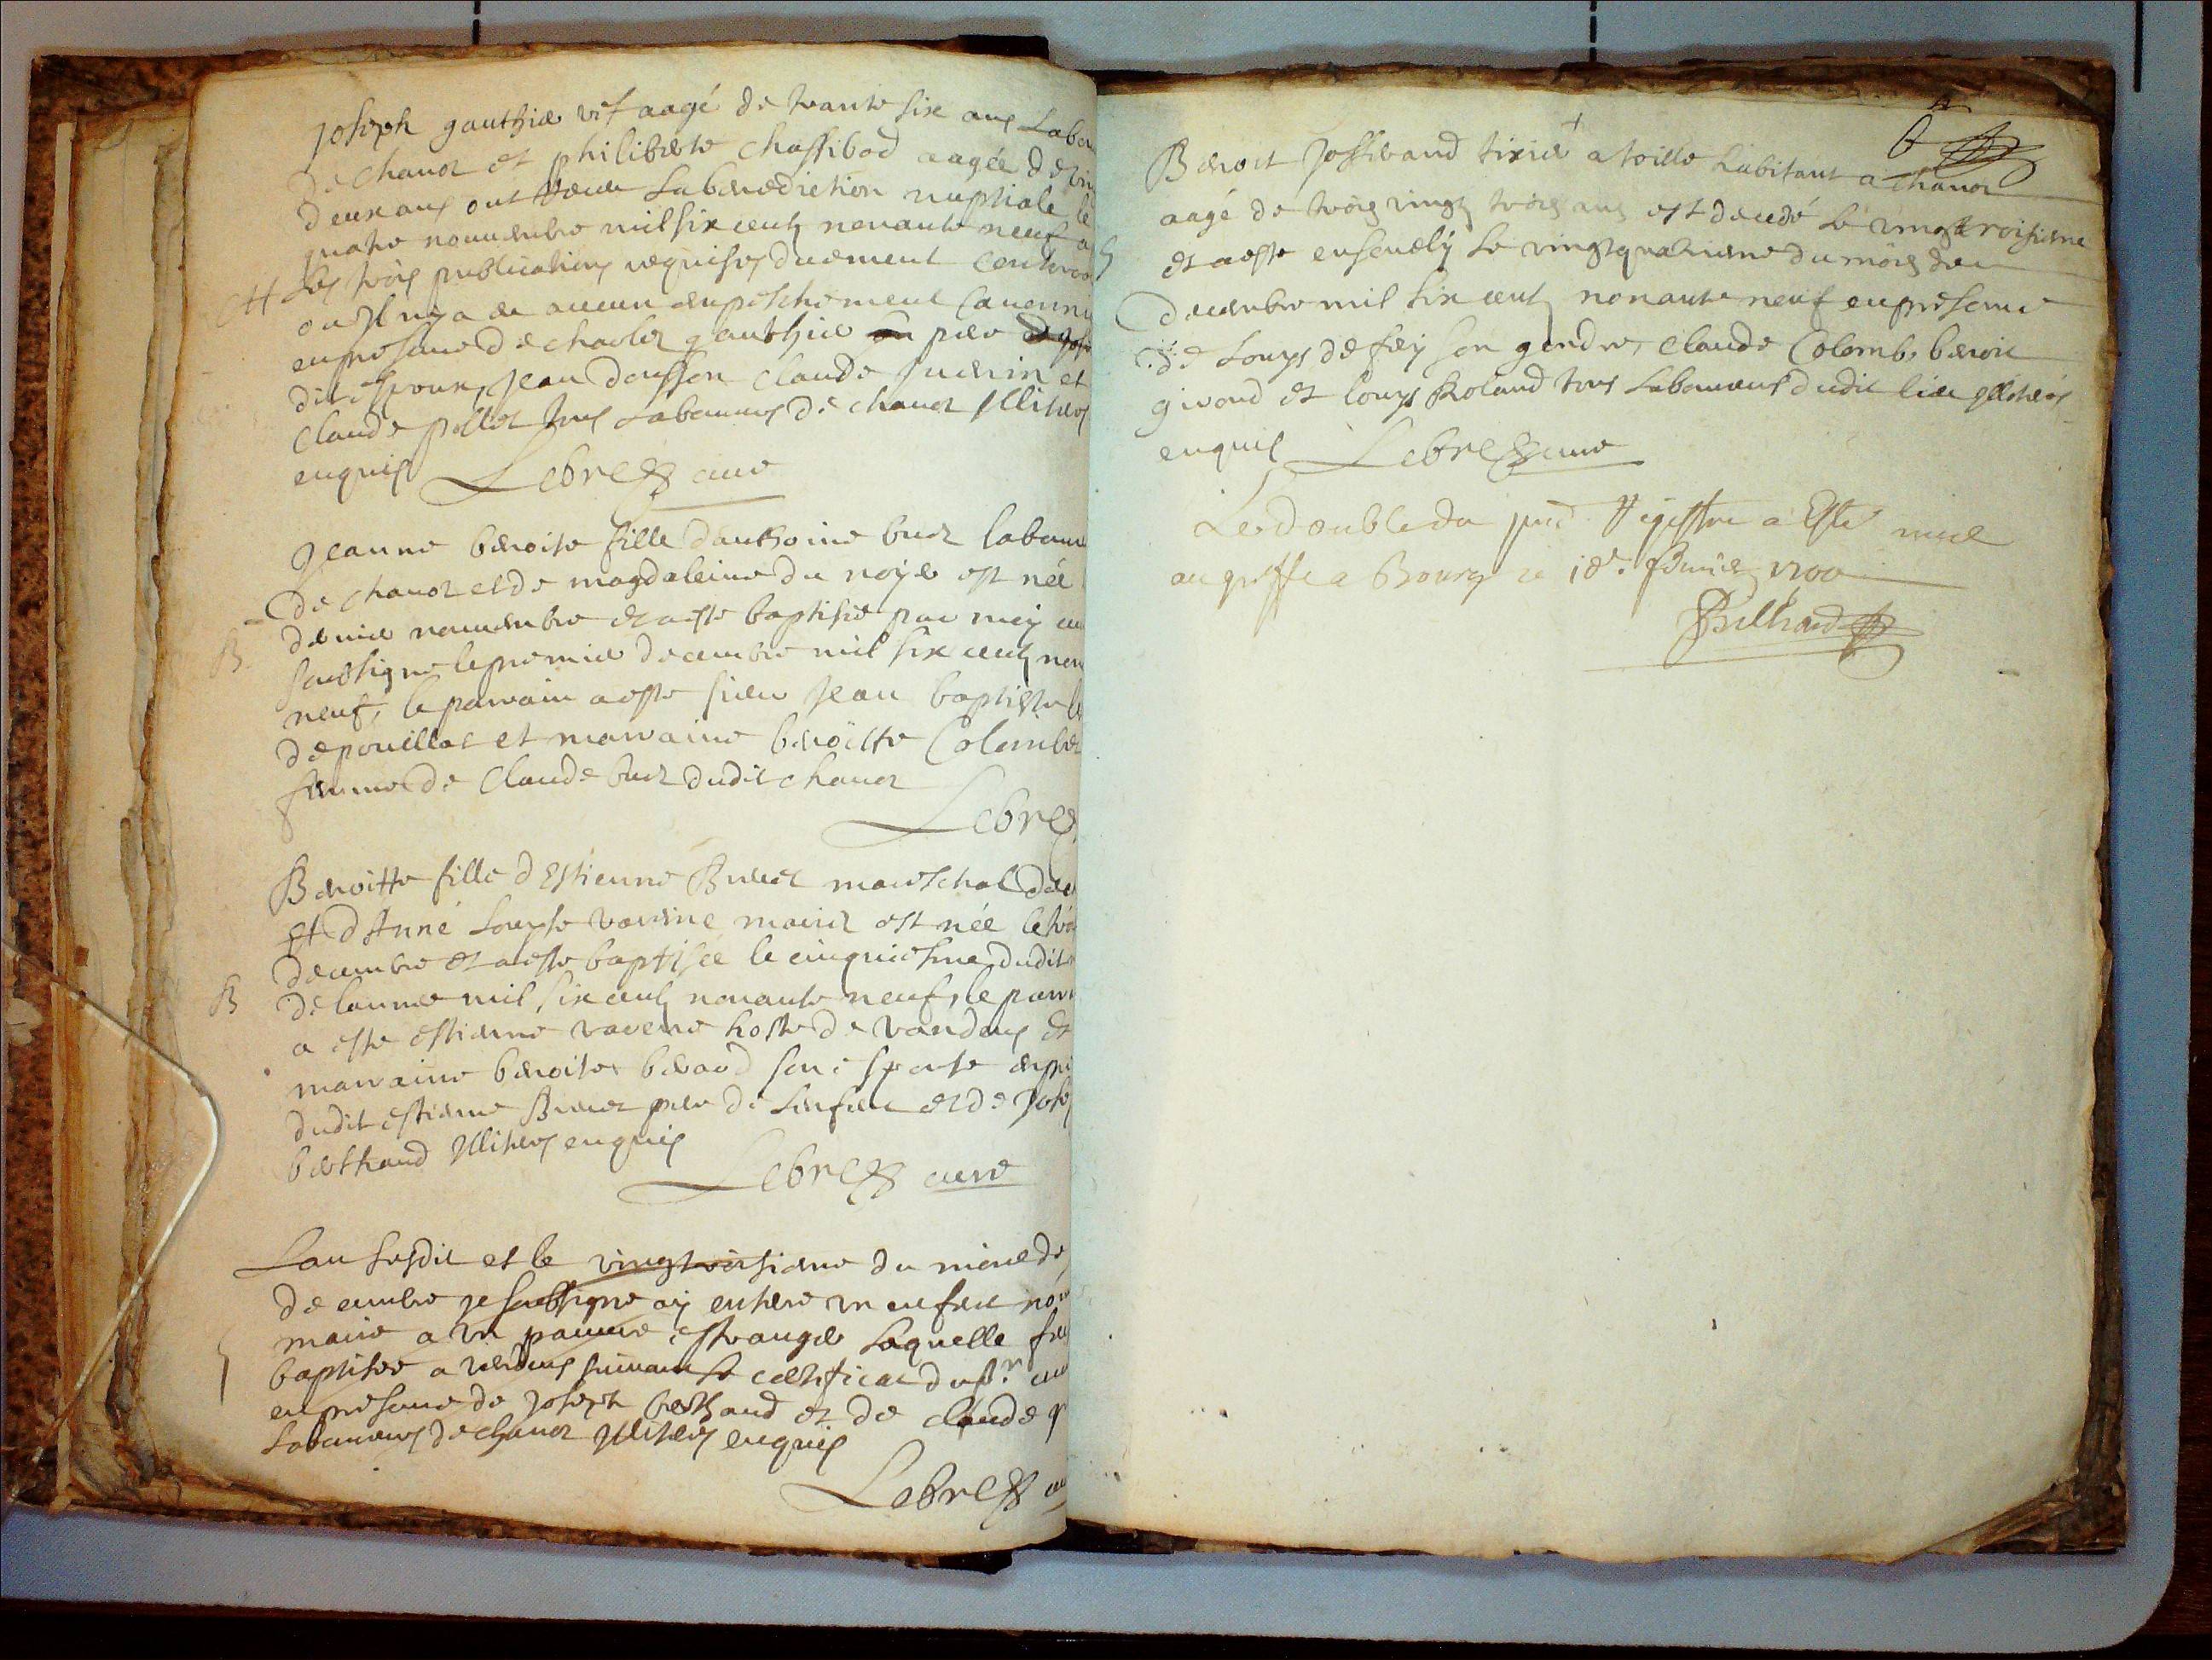 Joseph gauthier vef aagé de trante six ans Labou
de chanoz et philiberte chassibod aagée de vin
deux ans ont receu la benediction nuptiale le
quatre nouembre mil six cents nonante neuf a
M les trois publications requises duement
ou Il ny a eu aucun empeschement
en presence de charles gauthier pere
dit espoux, Jean Claude et
Claude tous Laboureurs de chanoz Illiteres
enquis Lebrez cure
Jeanne benoite fille danthoine buer laboure
de chanoz et de magdaleine du noyer est née
B dernier nouembre et a esté baptisée par moy cu
soubsigne le premier decembre mil six cents non
neuf, le parrain a este sieur Jean baptiste
de pouillat et marraine benoitte Colomber
femme de Claude buer dudit chanoz
Lebrez
Benoitte fille d'Estienne Buer mareschal
et d'Anne Louyse varine mariez est née le troi
decembre et a esté baptisée le cinquiesme dudit
B de lannee mil six cents nonante neuf, le parr
a este estienne hoste de vandeins et
marraine benoite berard son espouse
dudit estienne Buer pere de lenfant et de Jose
berthaud Illiteres enquis
Lebrez cure
Lan susdit et le vingtroisieme du mois de
decembre je soubsigne ay enterre un enfant
a un pauure estranger laquelle fu
S baptisee a suivant le certificat du sr. cu
en presence de Joseph berthaud et de claude
Laboureurs de chanoz Illiteres enquis
Lebrez cu
Benoit Josserand tixier a toille habitant a chanoz
aagé de trois vingts trois ans est decedé le vingtroisieme
S et a este ensevely le vingtquatrieme du mois de
decembre mil six cents nonante neuf en presence
de Louys de fay son gendre, Claude Colomb, benoit
girond et Louys Roland tous Laboureurs dudit lieu Illiteres
enquis Lebrez cure
Le double du pnt. Registre a Esté mis
au greffe a Bourg ce 18e. Feburier 1700